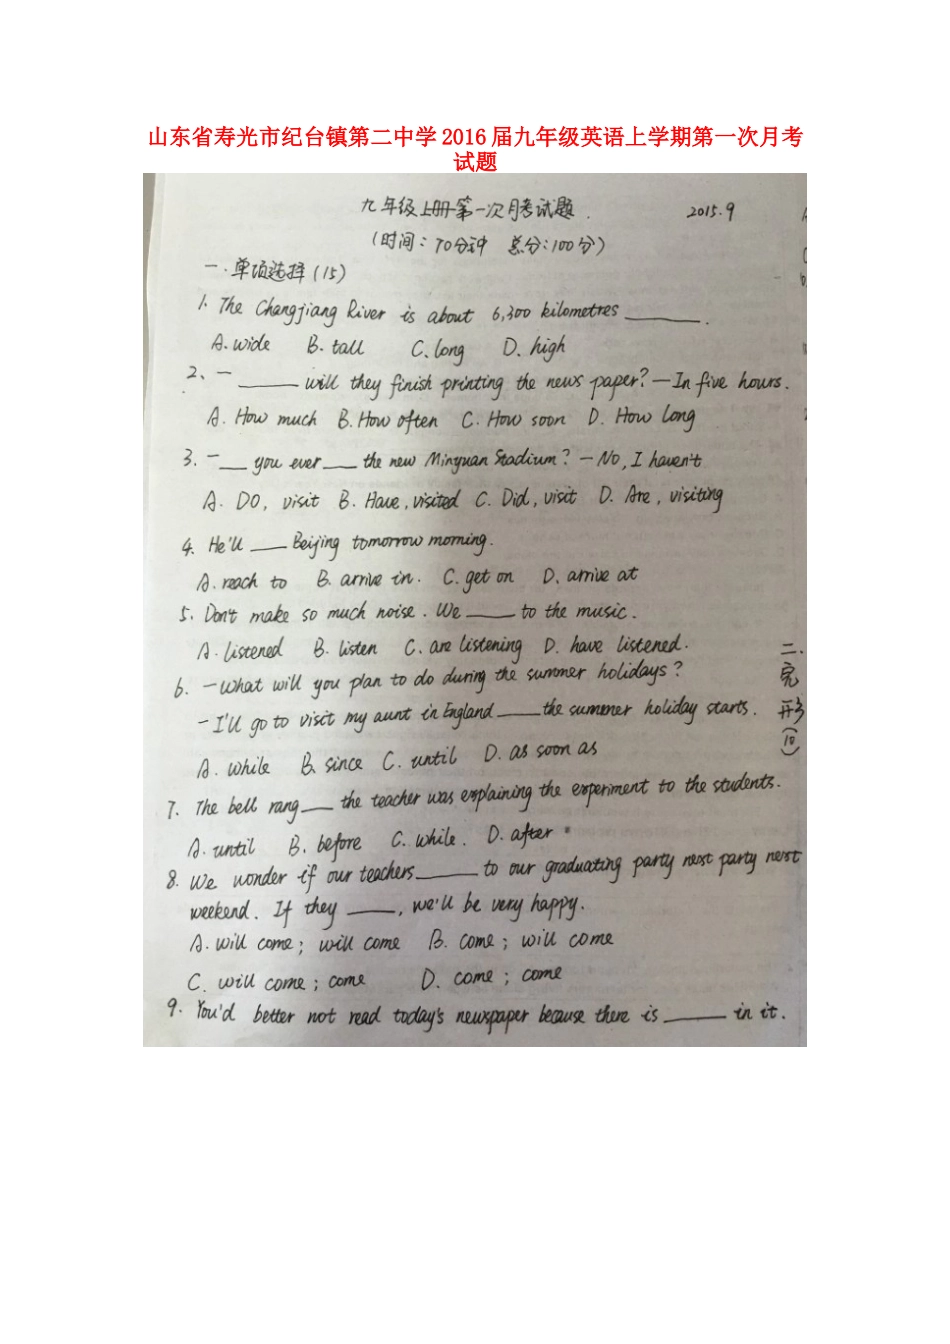 山东省寿光市纪台镇第二中学 2016 届九年级英语上学期第一次月考
试题
九年级上册第一次月考试题. 2015.9
(时间:70分钟 总分:100分)
一.单项选择(15)
1. The Changjiang River is about 6,300 kilometres ______.
A. wide B. tall C. long D. high
2、— ______ will they finish printing the news paper? — In five hours.
A. How much B. How often C. How soon D. How long
3. — ___ you ever ___ the new Minyuan Stadium? — No, I haven't
A. DO, visit B. Have, visited C. Did, visit D. Are, visiting
4. He'll ____ Beijing tomorrow morning.
A. reach to B. arrive in. C. get on D. arrive at
5. Don't make so much noise. We _____ to the music.
A. listened B. listen C. are listening D. have listened.
6. — What will you plan to do during the summer holidays?
— I'll go to visit my aunt in England ____ the summer holiday starts.
A. while B. since C. until D. as soon as
7. The bell rang ___ the teacher was explaining the experiment to the students.
A. until B. before C. while. D. after
8. We wonder if our teachers ______ to our graduating party next party next
weekend. If they _____, we'll be very happy.
A. will come; will come B. come; will come
C. will come; come D. come; come
9. You'd better not read today's newspaper because there is ______ in it.
二.
完
形
(10)